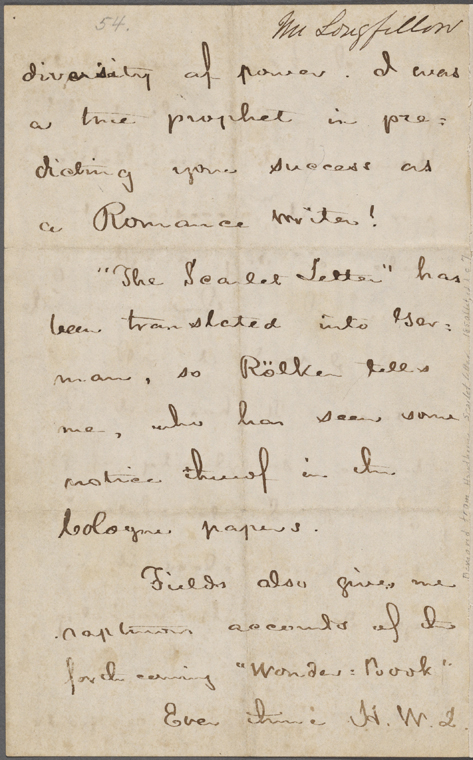 54.
Mr Longfellow
diversity of power. I was
a true prophet in pre=
dicting your success as
a Romance writer!
"The Scarlet Letter" has
been translated into Ger=
man, so Rölker tells
me, who has seen some
notice thereof in the
Cologne papers.
Fields also gives me
rapturous accounts of the
forthcoming "Wonder=Book"
Ever thine H. W. L.